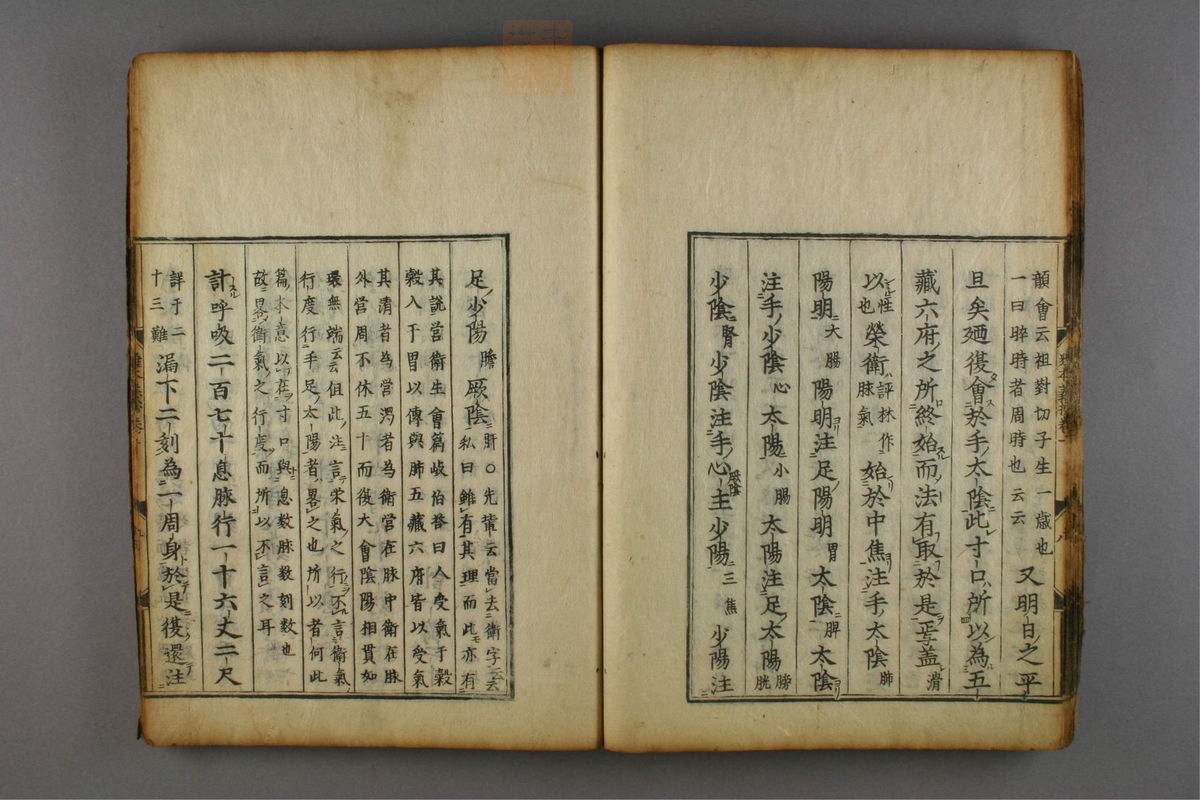 韻會云祖對切子生一歳也
一曰晬時者周時也云云
又明日之平
旦矣廼復會於手太陰此寸口所以為五
藏六府之所終始而法有取於是焉蓋滑
以也性榮衛評林作脉氣始於中焦注手太陰肺
陽明大腸陽明注足陽明胃太陰脾太陰
注手少陰心太陽小腸太陽注足太陽膀胱
少陰腎少陰注手心主厥陰少陽三焦少陽注
足少陽膽厥陰肝○先輩云當去衛字云云
私曰雖有其理而此亦有
其説營衛生會篇岐伯答曰人受氣于穀
穀入于胃以傳與肺五藏六府皆以受氣
其清者為營濁者為衛營在脉中衛在脉
外營周不休五十而復大會陰陽相貫如
環無端云云但此注言栄氣之行不言衛氣
行度行手足太陽者畧之也所以者何此
篇本意以在寸口與息数脉数刻数也
故畧衛氣之行度而所以不言之耳
計呼吸二百七十息脉行一十六丈二尺
詳于二
十三難
漏下二刻為一周身於是復還注